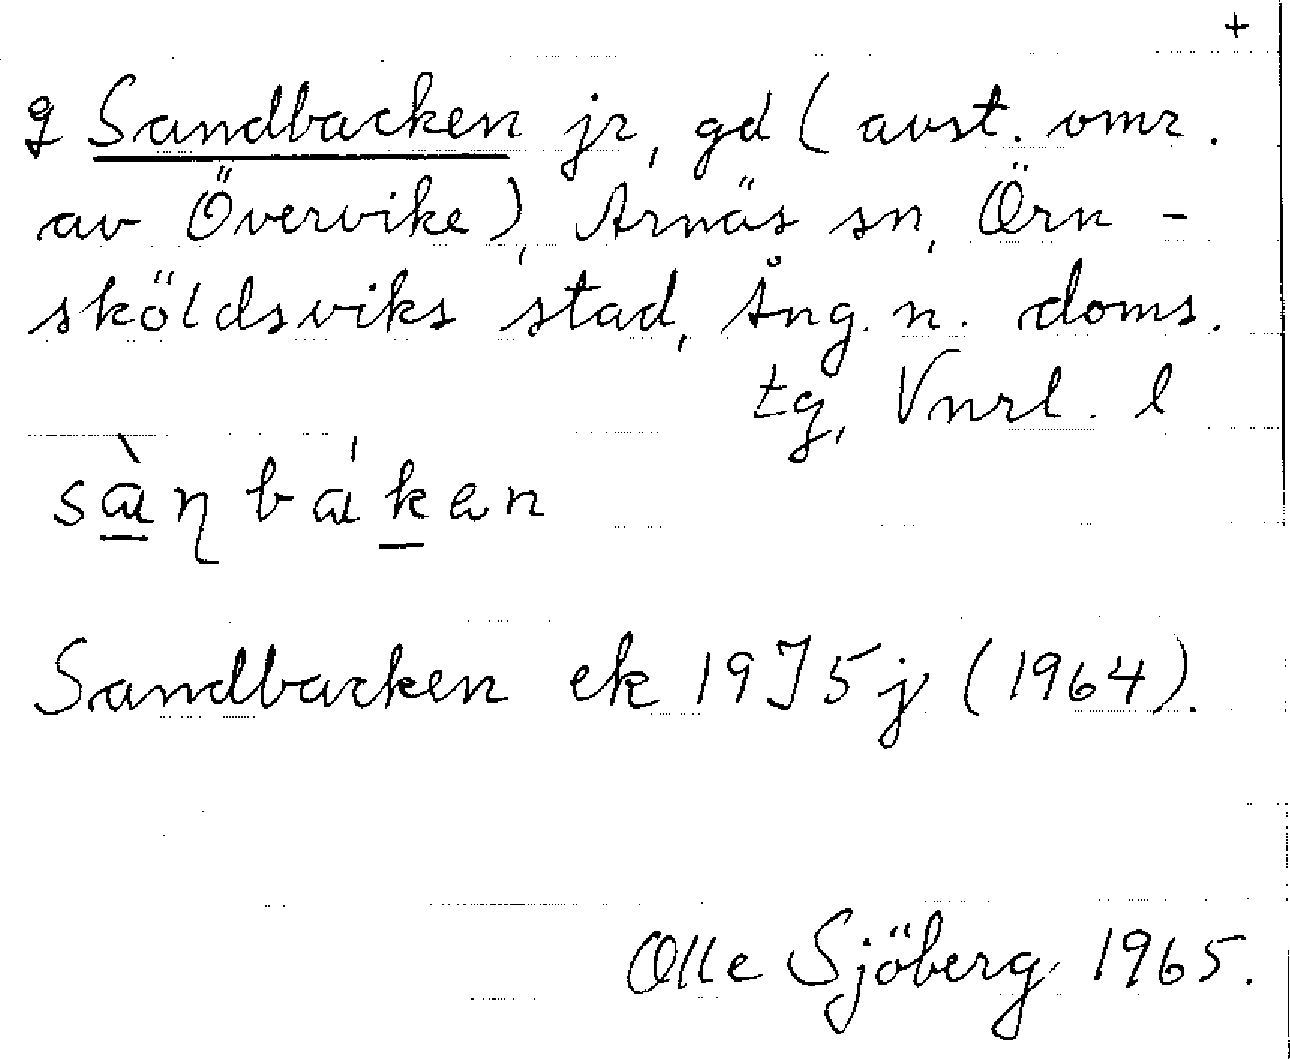 +
g Sandbacken jr, gd (avst. omr.
av Övervike), Arnäs sn, Örn-
sköldsviks stad, Ång. n. doms.
tg, Vnrl. l
sàŋbákan
Sandbacken ek 19J5j (1964).
Olle Sjöberg 1965.